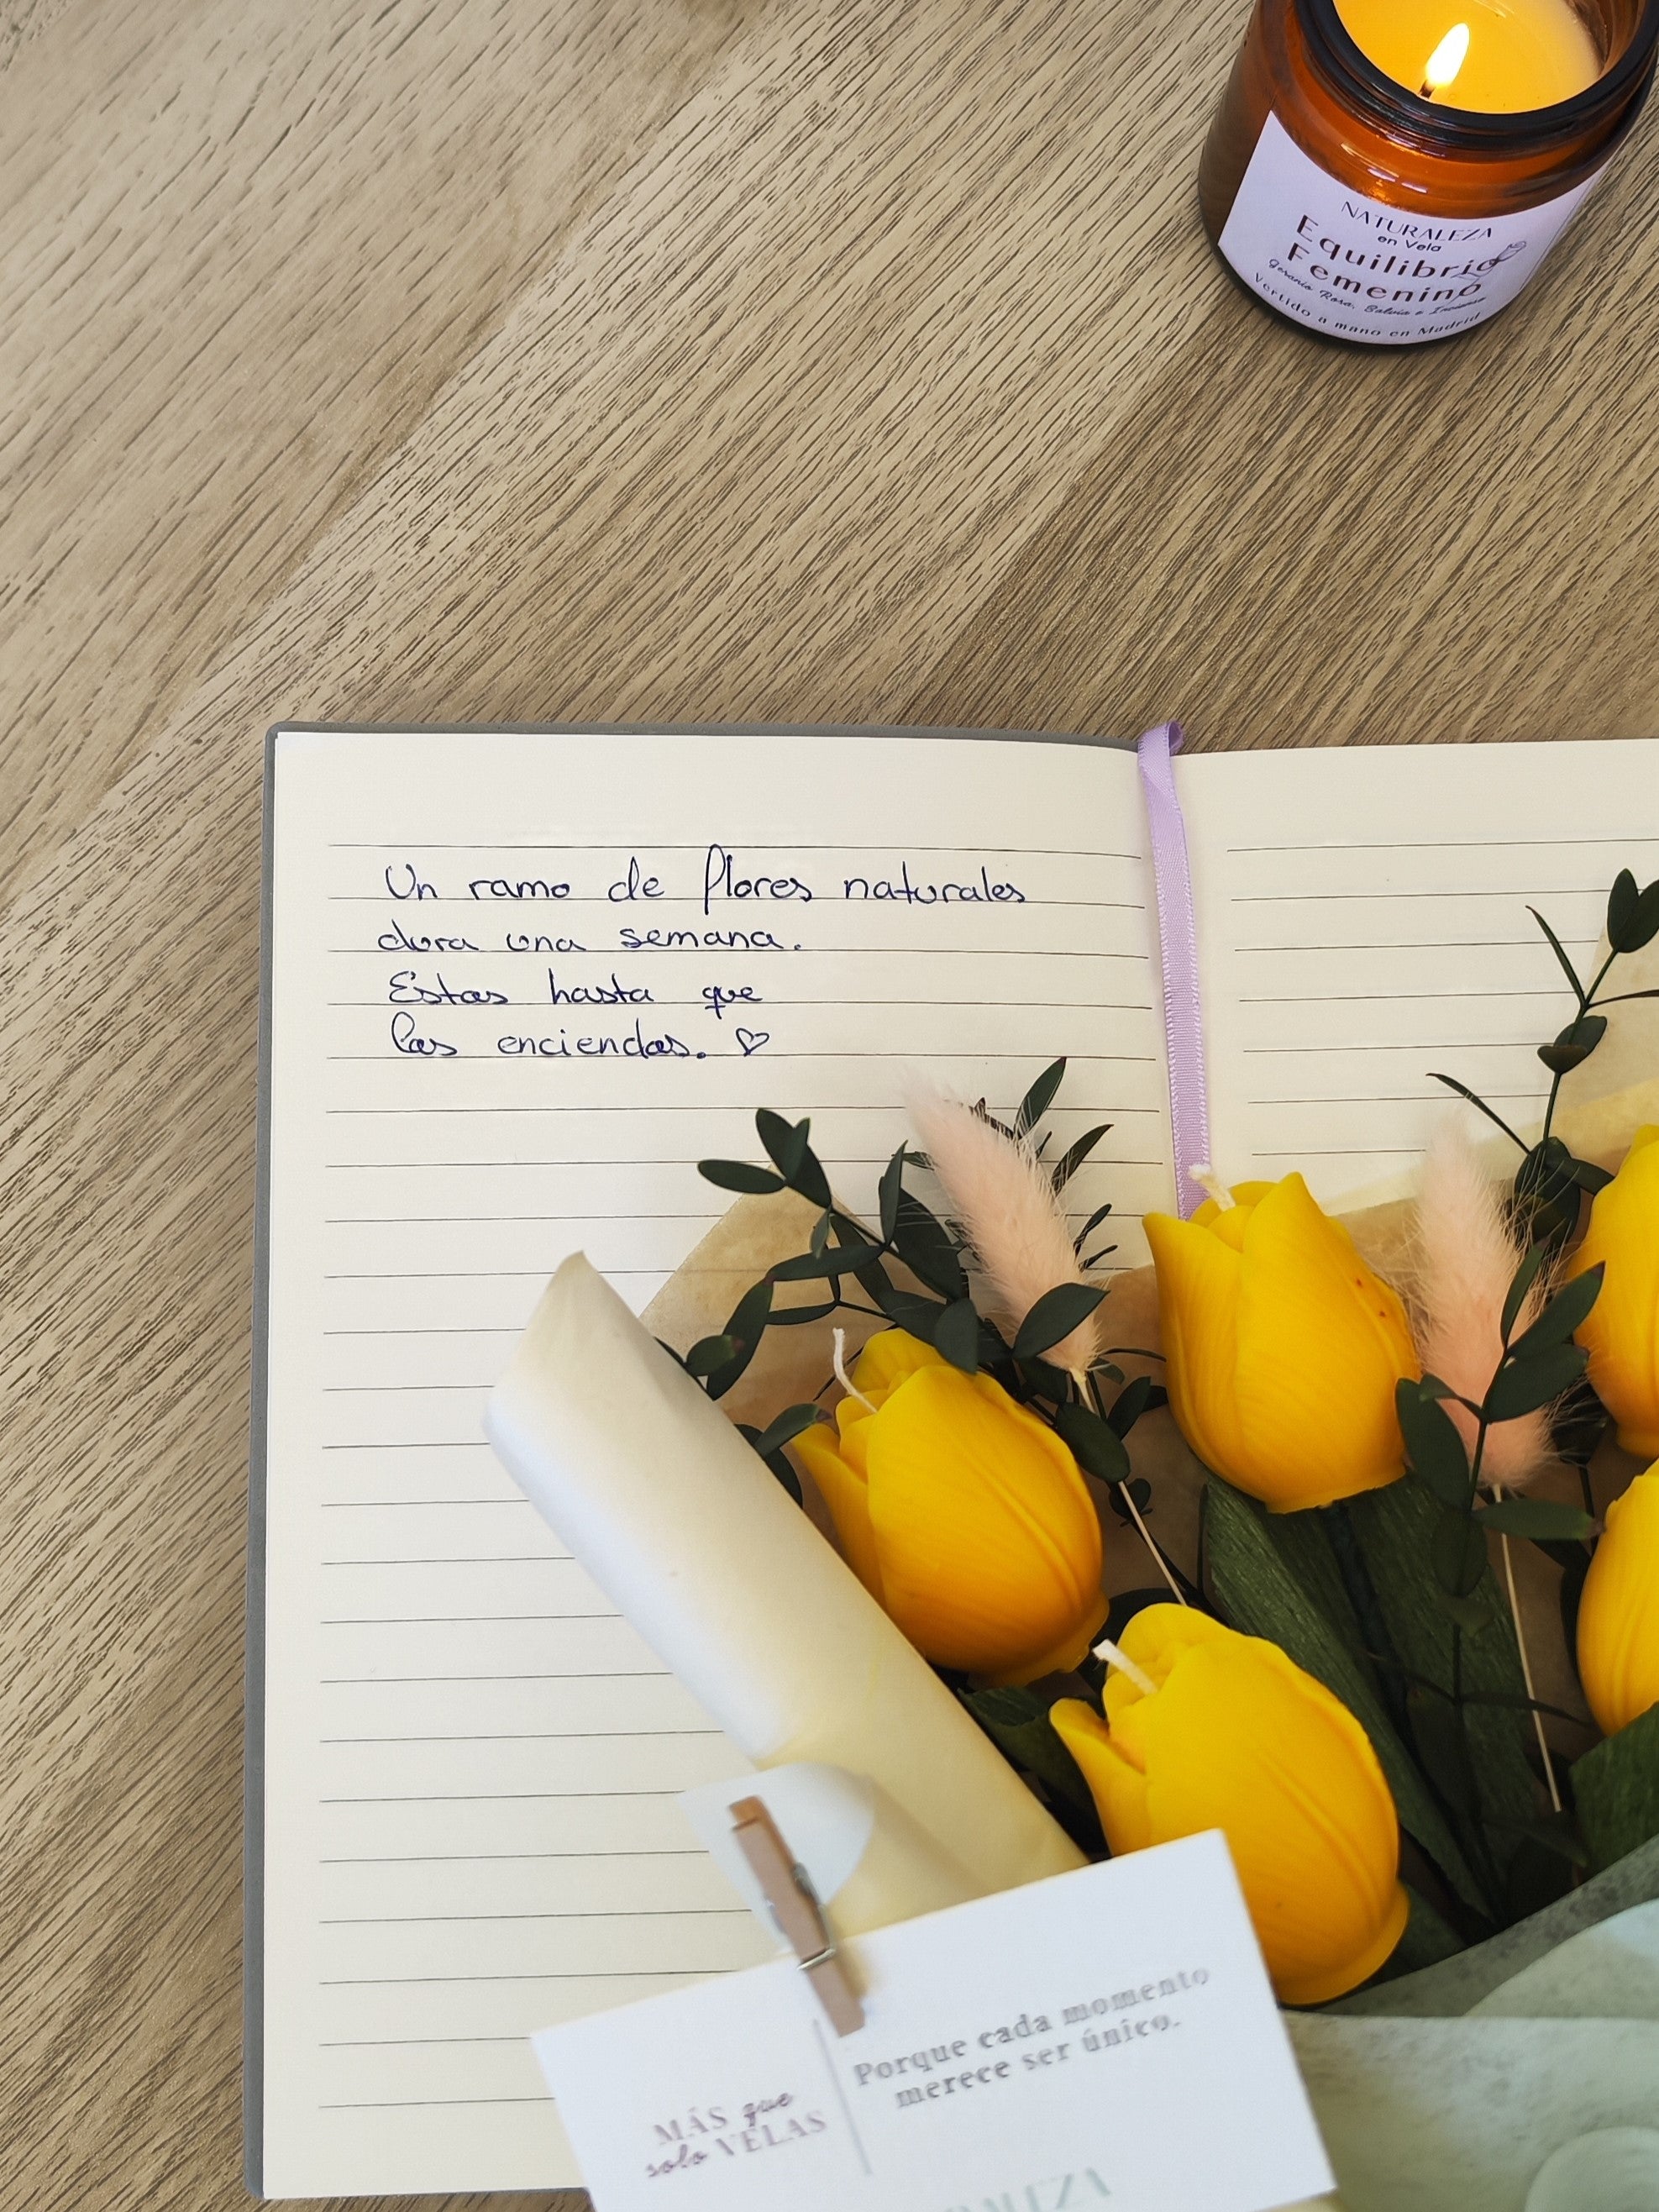 NATURALEZA
en Vela
Equilibrio
Femenino
Geranio Rosa, Salvia e Incienso
Vertido a mano en Madrid
Un ramo de flores naturales
dura una semana.
Estas hasta que
las enciendas. ♡
MÁS que
solo VELAS
Porque cada momento
merece ser único.